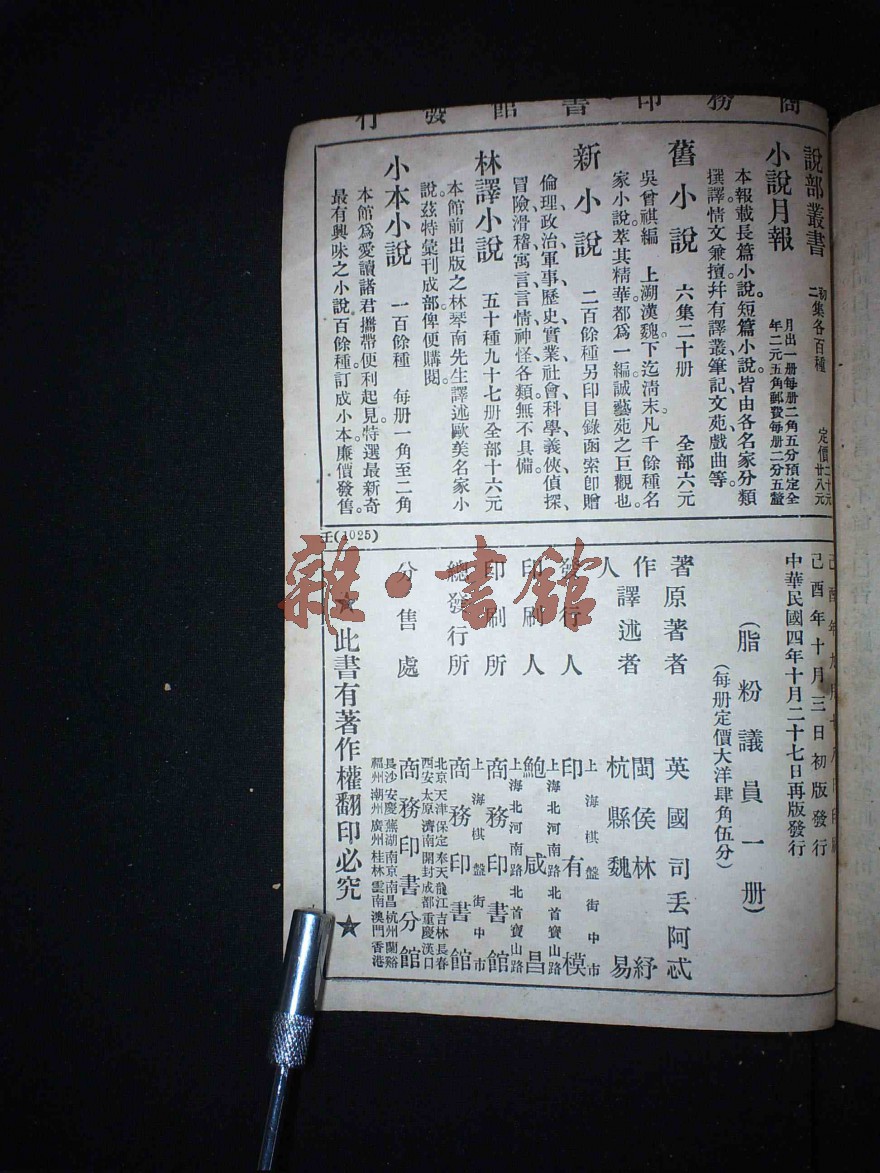 商務印書館發行
說部叢書 初二集各百種 定價二十元廿八元
小說月報 月出一册每册二角五分預定全年二元五角郵費每册二分五釐
本報載長篇小說。短篇小說。皆由各名家分類
撰譯情文兼擅幷有譯叢、筆記、文苑、戲曲等。
舊小說 六集二十册 全部六元
吳曾祺編 上溯漢魏。下迄淸末。凡千餘種名
家小說。萃其精華都爲一編。誠藝苑之巨觀也。
新小說 二百餘種另印目錄函索卽贈
倫理、政治、軍事、歷史、實業、社會、科學、義俠、偵探、
冒險、滑稽、寓言、言情、神怪、各類無不具備。
林譯小說 五十種九十七册全部十六元
本館前出版之林琴南先生譯述歐美名家小
說。茲特彙刊成部。俾便購閱。
小本小說 一百餘種 每册一角至二角
本館爲愛讀諸君攜帶便利起見。特選最新奇
最有興味之小說百餘種。訂成小本。廉價發售。
壬(1025)
己酉年
己酉年十月三日初版發行
中華民國四年十月二十七日再版發行
(脂粉議員一册)
(每册定價大洋肆角伍分)
著作人
原著者 英國司丟阿忒
譯述者 閩侯林紓 杭縣魏易
發行人 上海棋盤街中市 印有模
印刷人 上海北河南路北首寶山路 鮑咸昌
印刷所 上海北河南路北首寶山路 商務印書館
總發行所 上海棋盤街中市 商務印書館
分售處 北京天津保定奉天龍江吉林長春
西安太原濟南開封成都重慶漢口
商務印書分館
長沙安慶蕪湖南京南昌杭州蘭谿
福州潮州廣州桂林雲南澳門香港
★此書有著作權翻印必究★
雜·書館